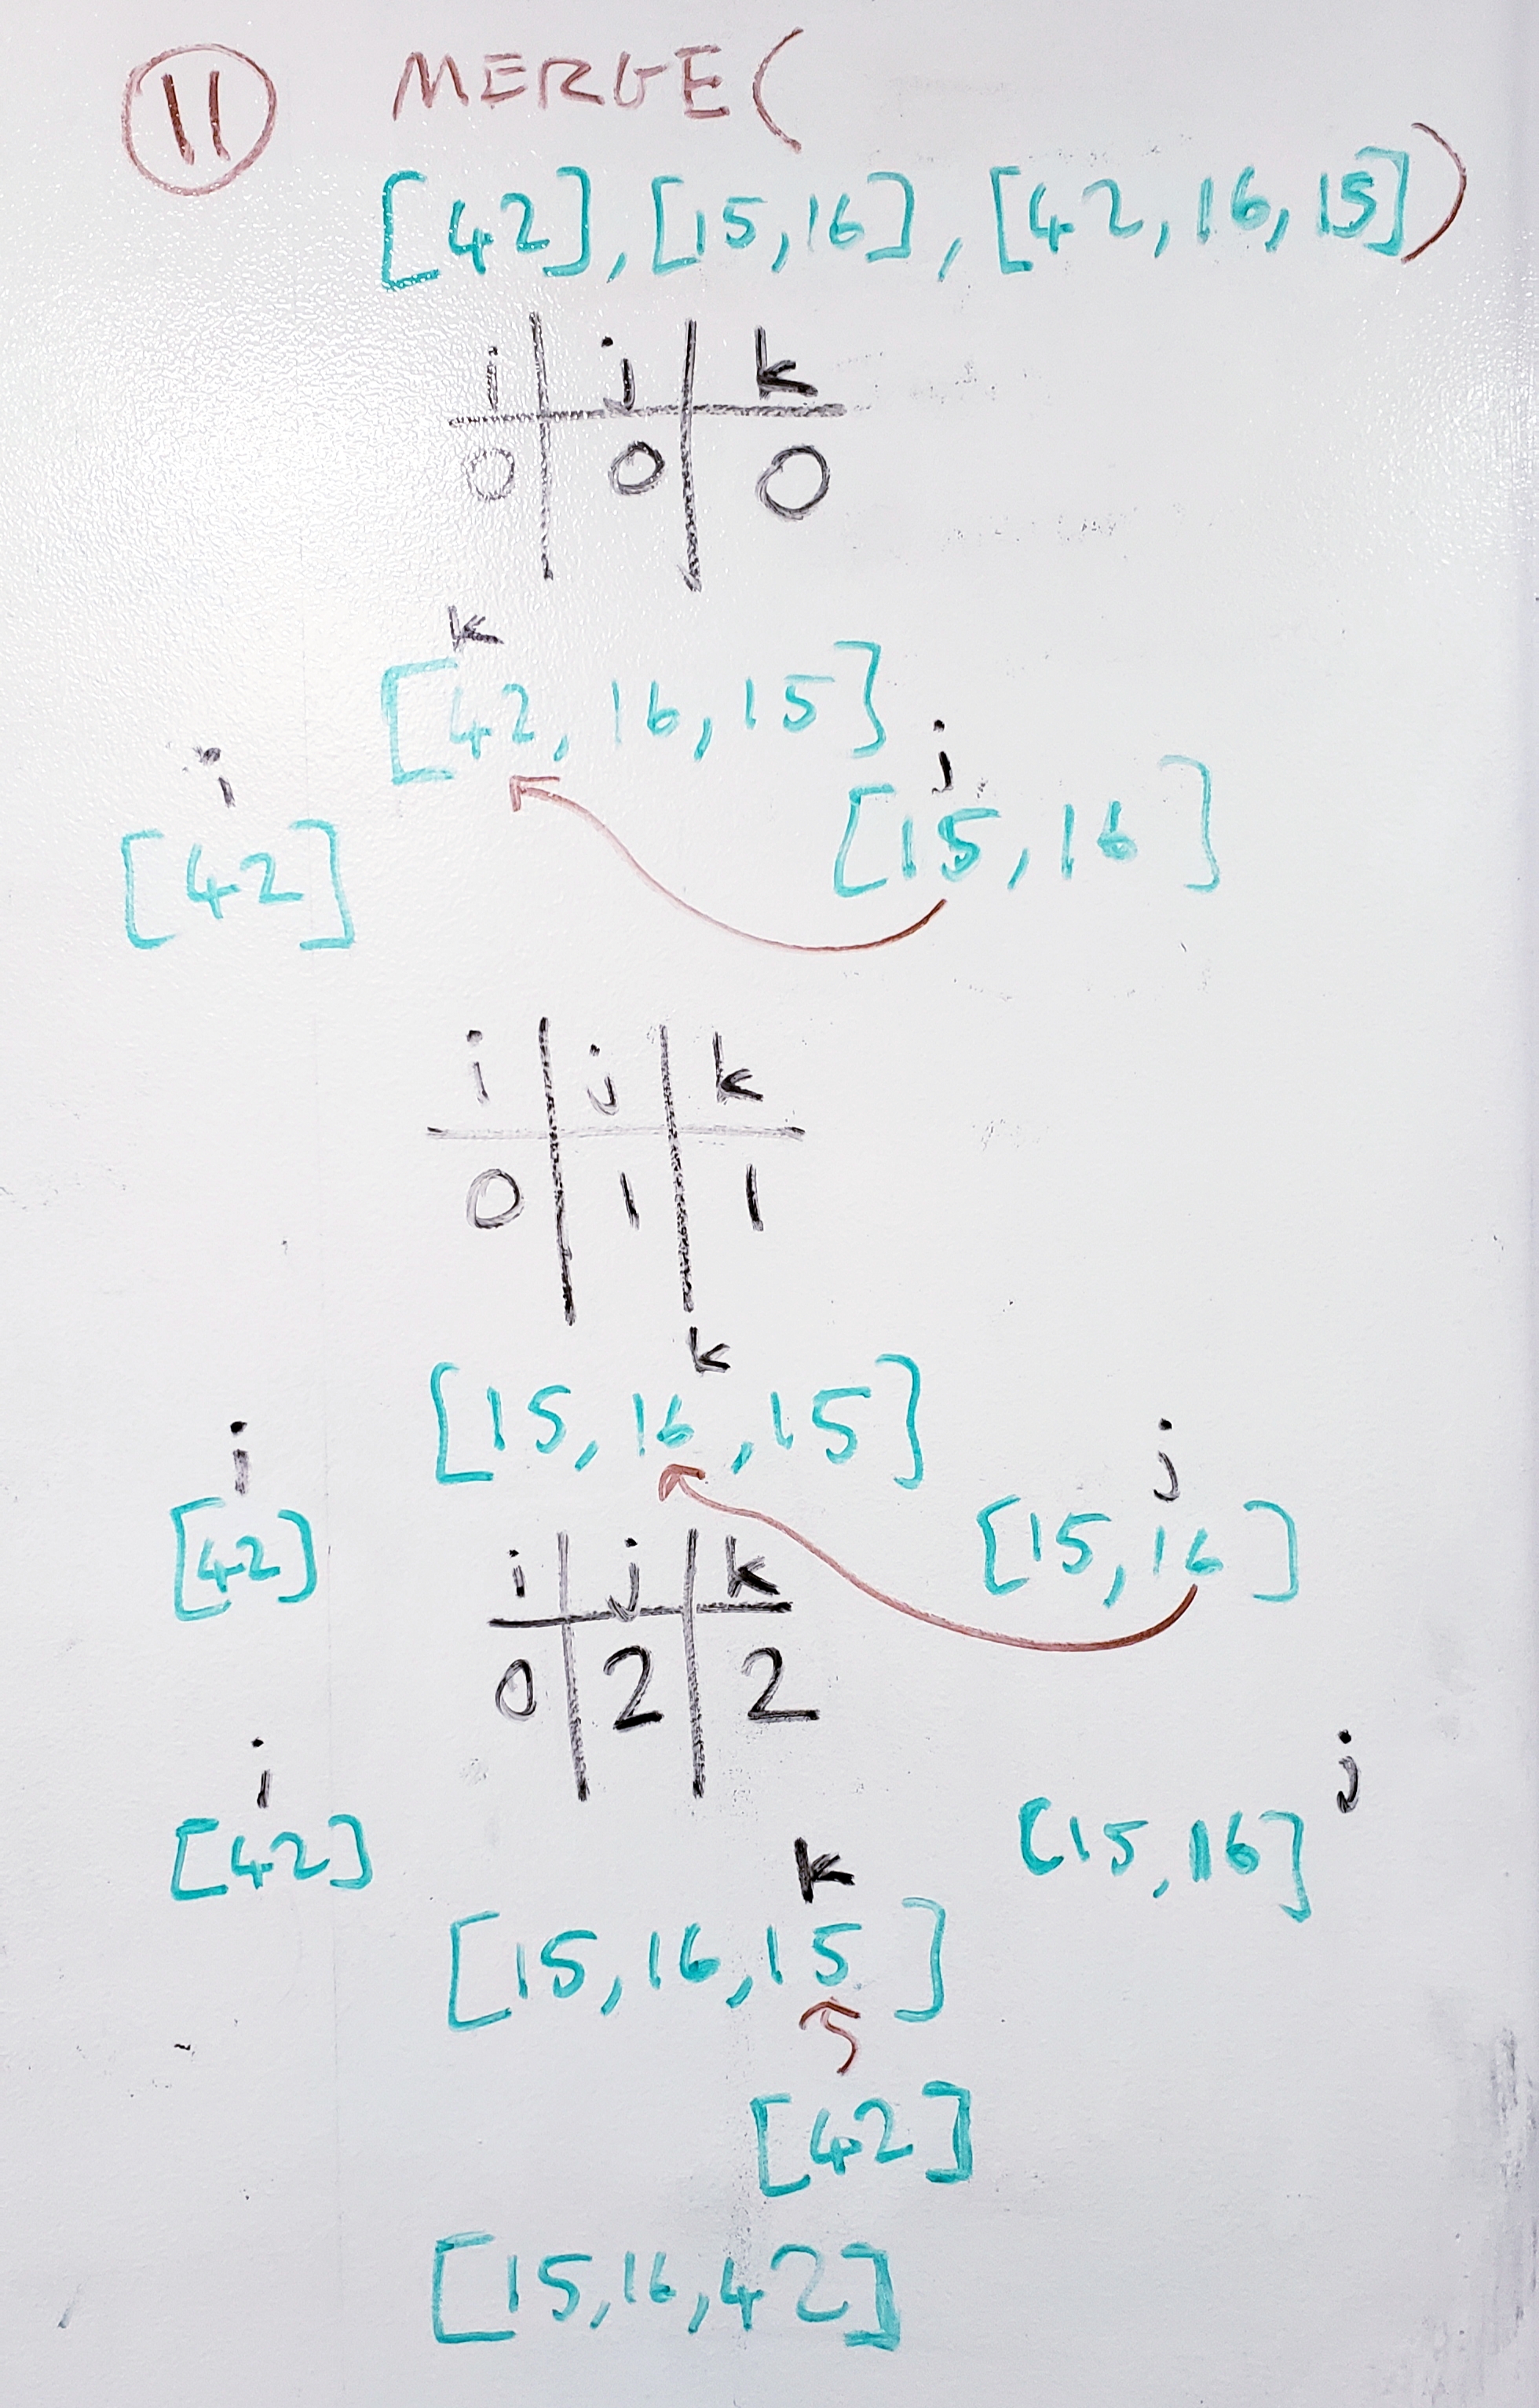 11 MERGE(
[42], [15, 16], [42, 16, 15])
i j k
0 0 0
k
[42, 16, 15]
i j
[42] [15, 16]
i j k
0 1 1
k
[15, 16, 15]
i j
[42] [15, 16]
i j k
0 2 2
i j
[42] [15, 16]
k
[15, 16, 15]
[42]
[15, 16, 42]